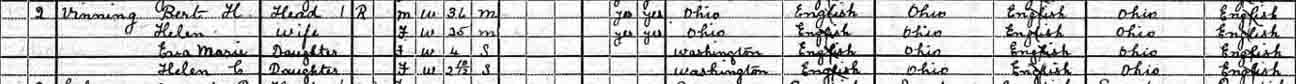 2 Vinning Bert H. Head 1 R M W 36 M yes yes Ohio English Ohio English Ohio English
Helen Wife F W 35 M yes yes Ohio English Ohio English Ohio English
Eva Marie Daughter F W 4 S Washington English Ohio English Ohio English
Helen C Daughter F W S Washington English Ohio English Ohio English